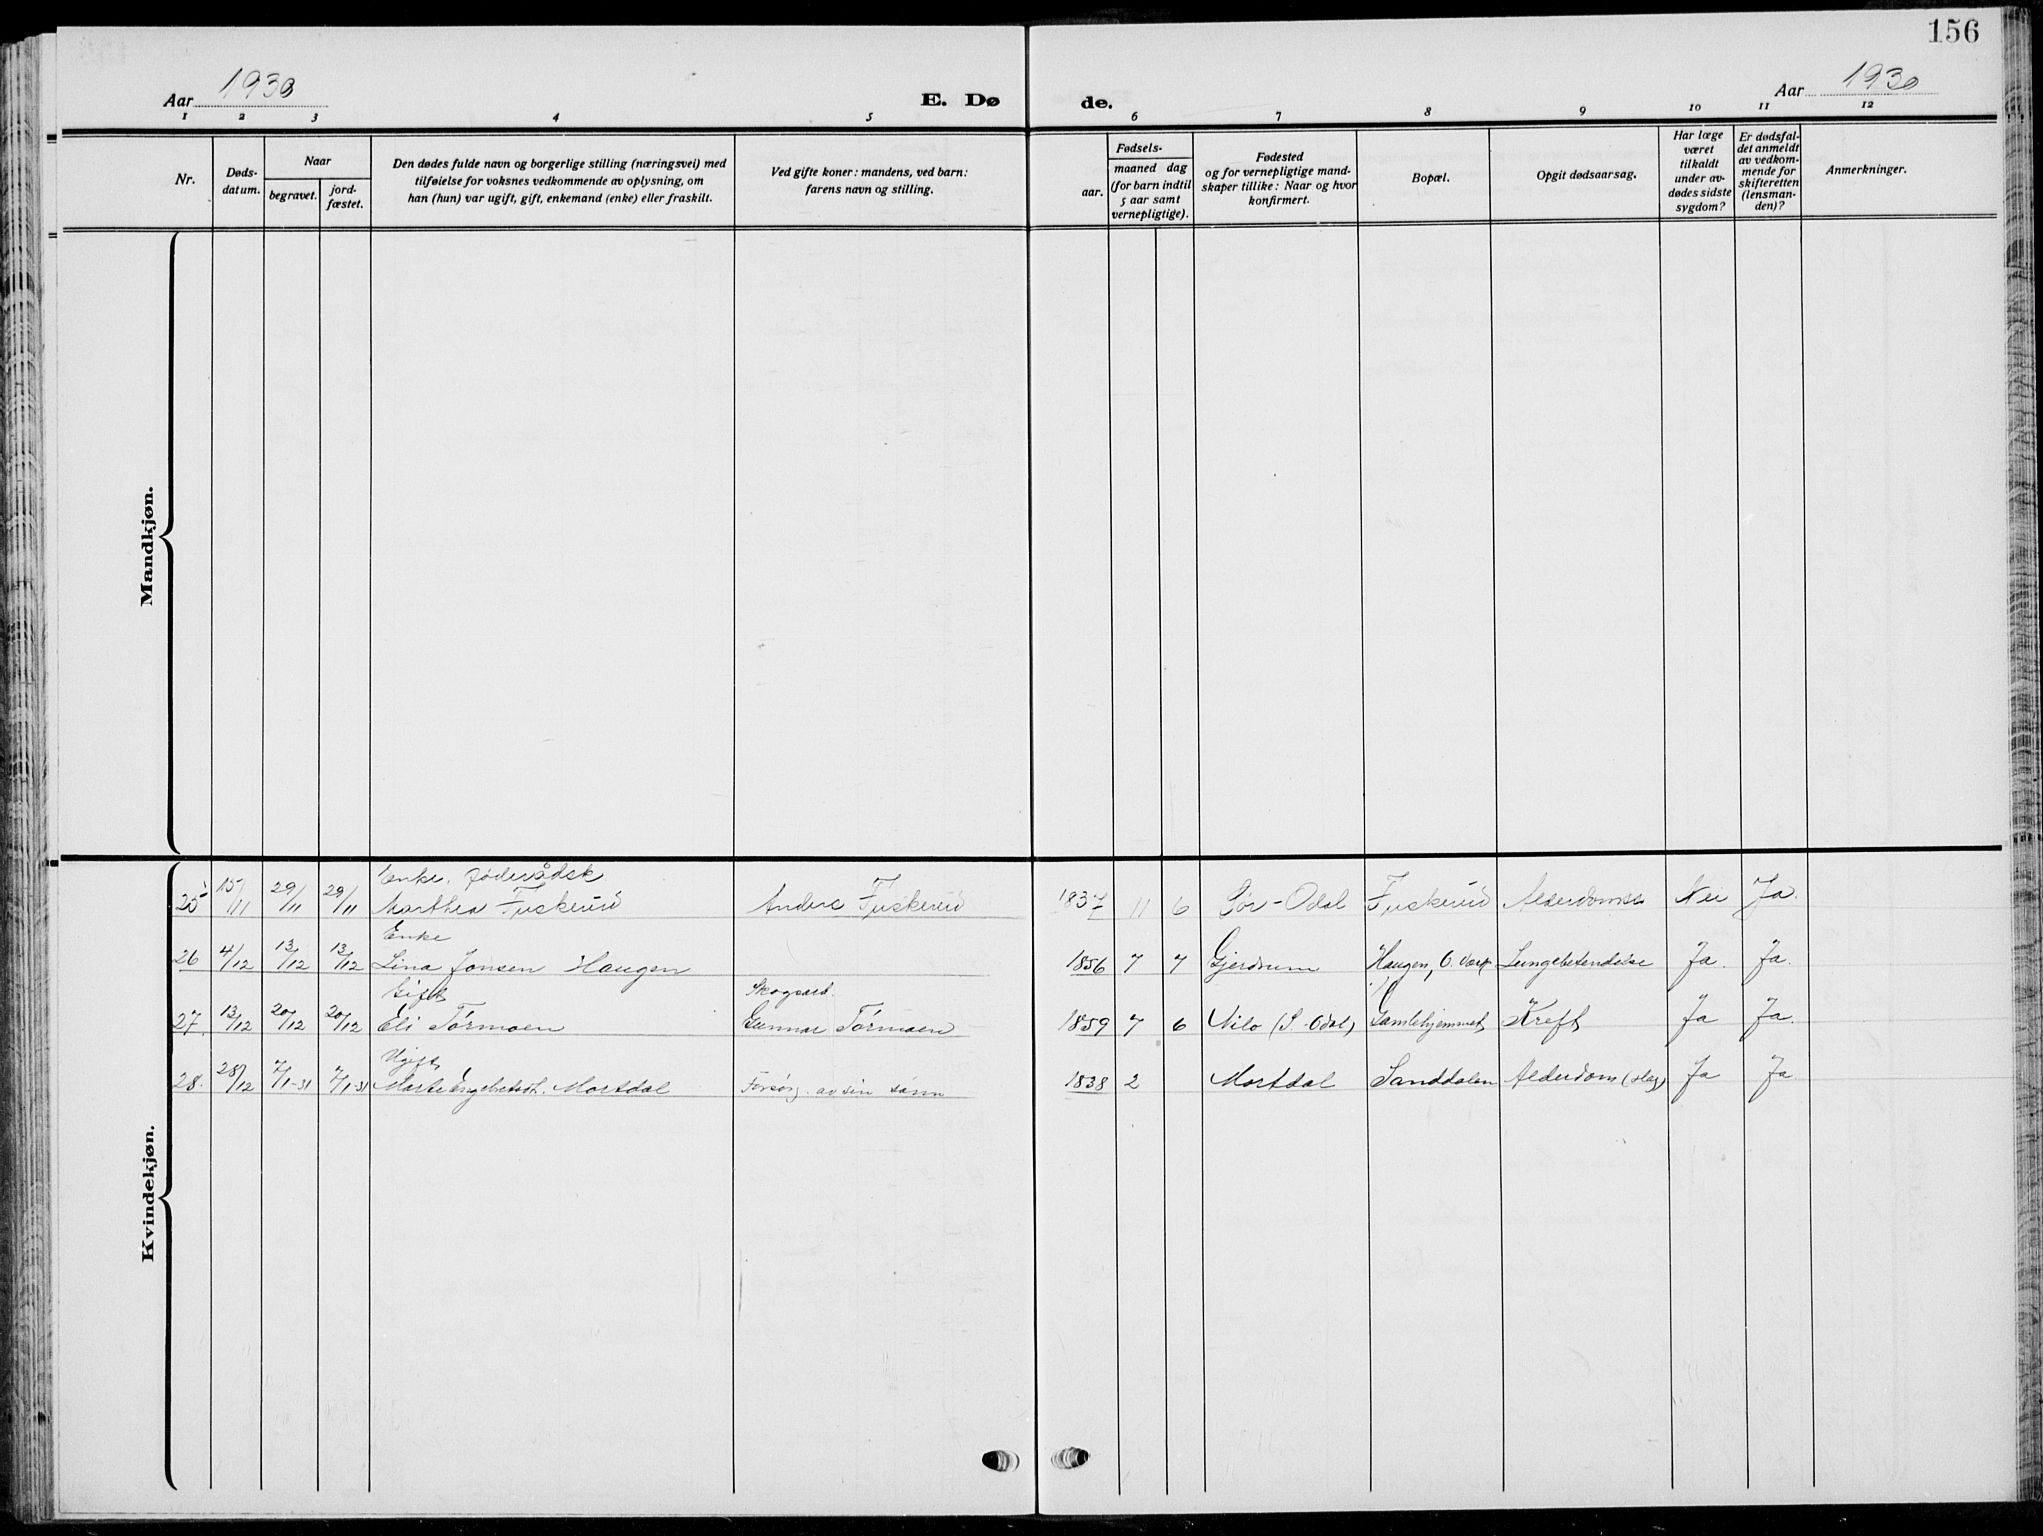 156
Aar 1930
E. Dø
de.
Aar 1930
1 2 3 4 5 6 7 8 9 10 11 12
Nr.
Døds-
datum.
Naar
begravet.
jord-
fæstet.
Den dødes fulde navn og borgerlige stilling (næringsvei) med
tilføielse for voksnes vedkommende av oplysning, om
han (hun) var ugift, gift, enkemand (enke) eller fraskilt.
Ved gifte koner: mandens, ved barn:
farens navn og stilling.
Fødsels-
aar.
maaned dag
(for barn indtil
5 aar samt
vernepligtige).
Fødested
og for vernepligtige mand-
skaper tillike: Naar og hvor
konfirmert.
Bopæl.
Opgit dødsaarsag.
Har læge
været
tilkaldt
under av-
dødes sidste
sygdom?
Er dødsfal-
det anmeldt
av vedkom-
mende for
skifteretten
(lensman-
den)?
Anmerkninger.
Mandkjøn.
Kvindekjøn.
Enke. Føderådsk
25 15/11 29/11 29/11 Marthea Fuskerud Anders Fuskerud 1837 11 6 Sør-Odal Fuskerud Alderdomss Nei Ja.
Enke
26 4/12 13/12 13/12 Lina Jonsen Haugen 1856 7 7 Gjerdrum Haugen, O. Lungebetendelse Ja. Ja.
Gift Skogsarb.
27. 13/12 20/12 20/12 Eli Tørmoen Gunnar Tørmoen 1859 7 6 Nilo (S-Odal) Gamlehjemmet Kreft Ja Ja.
Ugift
28. 28/12 7/1-31 7/1-31 Marte Engebretsdt. Mortdal Forsørg. av sin sønn 1838 2 Mortdal Sanddalen Alderdom (slag) Ja Ja